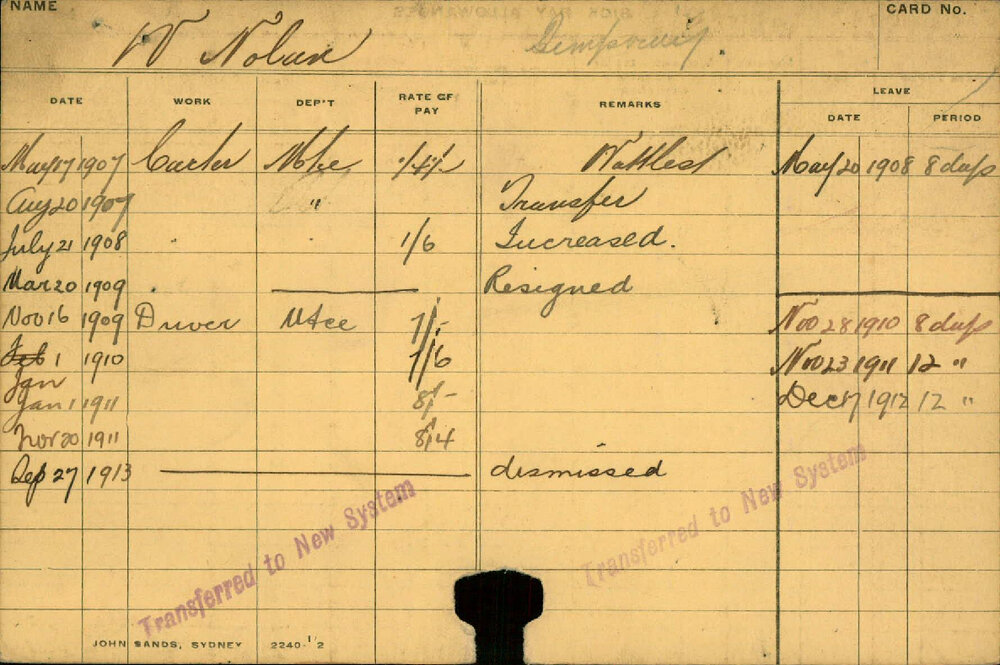 NAME
CARD No.
W Nolan
DATE WORK DEP'T RATE OF PAY REMARKS LEAVE
DATE PERIOD
May 17 1907 Carter Mtce May 20 1908 8 days
Aug 20 1907 " Transfer
July 21 1908 1/6 Increased.
Mar 20 1909 Resigned
Nov 16 1909 Driver Mtce 7/- Nov 28 1910 8 days
Feb 1 1910 7/6 Nov 23 1911 12 "
Jan
Jan 1 1911 8/- Dec 17 1912 12 "
Nov 20 1911 8/4
Sep 27 1913 dismissed
Transferred to New System
Transferred to New System
JOHN SANDS, SYDNEY 2240